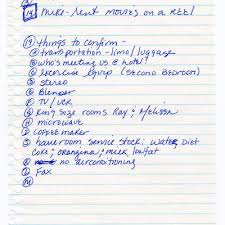 (14) MIKE - Rent MOVIES on a REEL
(19) things to confirm -
transportation - limo/luggage
who's meeting us @ hotel
exercise equip (second bedroom)
stereo
Blender
TV/VCR
King Size rooms Ray &
microwave
coffee maker
have room service stock: water, Diet
Coke, orangina, milk lowfat
no airconditioning
Fax